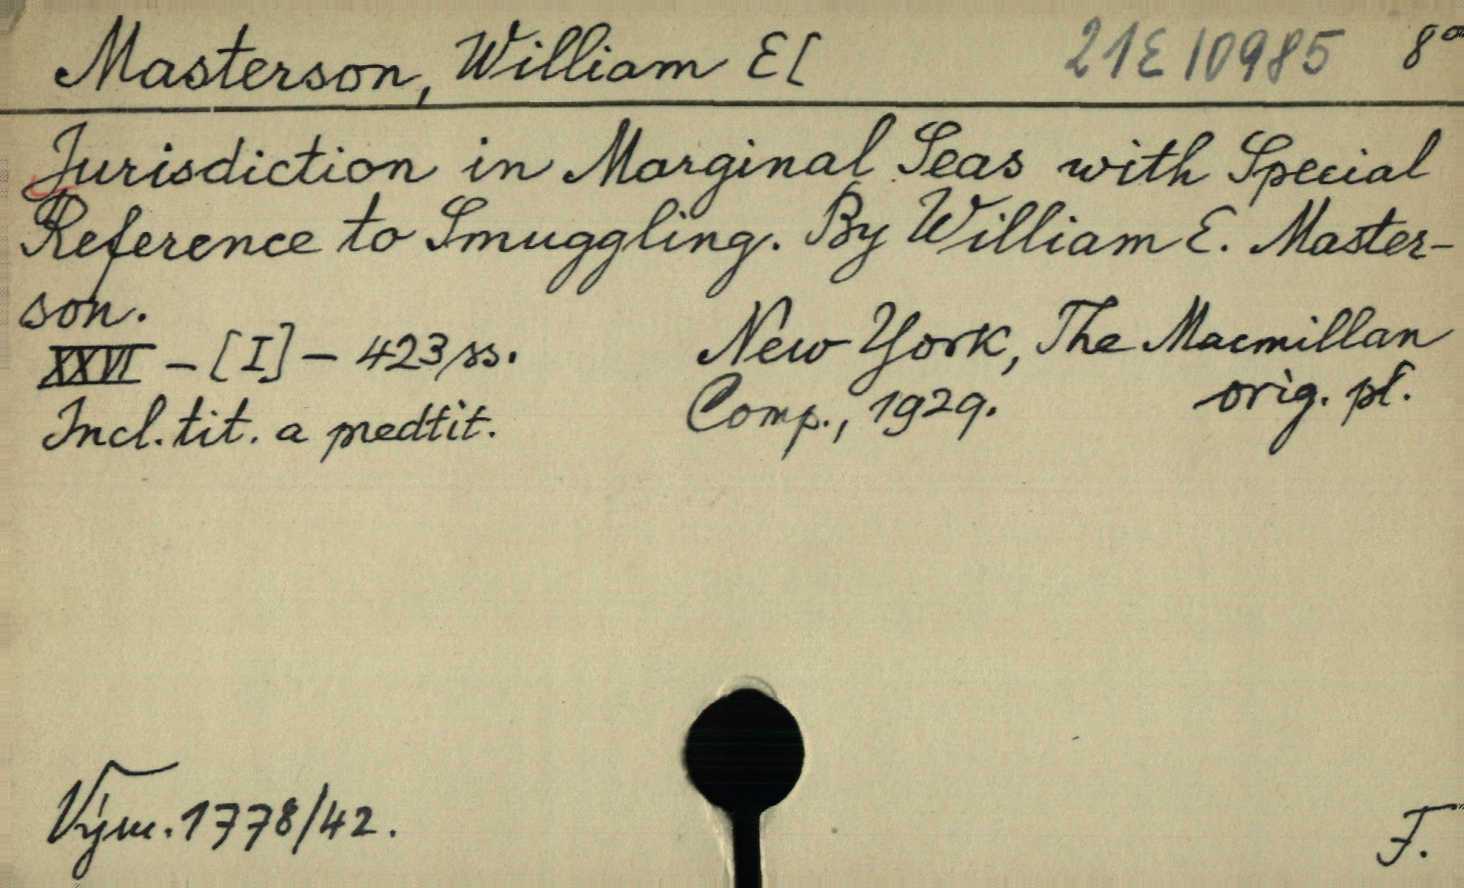 Masterson, William E[ 21E10985 8°
Jurisdiction in Marginal Seas with Special
Reference to Smuggling. By William E. Master-
son.
XXVI - [I] - 423 ss. New York, The Macmillan
Incl. tit. a predtit. Comp., 1929. orig. pl.
Vým. 1778/42. F.